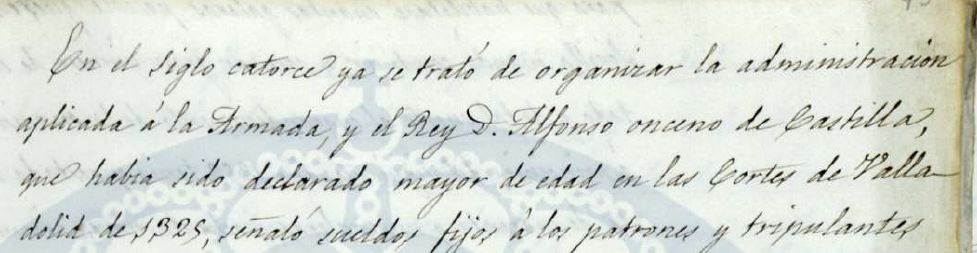 En el siglo catorce ya se trató de organizar la administracion
aplicada á la Armada, y el Rey D. Alfonso onceno de Castilla,
que habia sido declarado mayor de edad en las Cortes de Valla
dolid de 1325, señaló sueldos fijos á los patrones y tripulantes